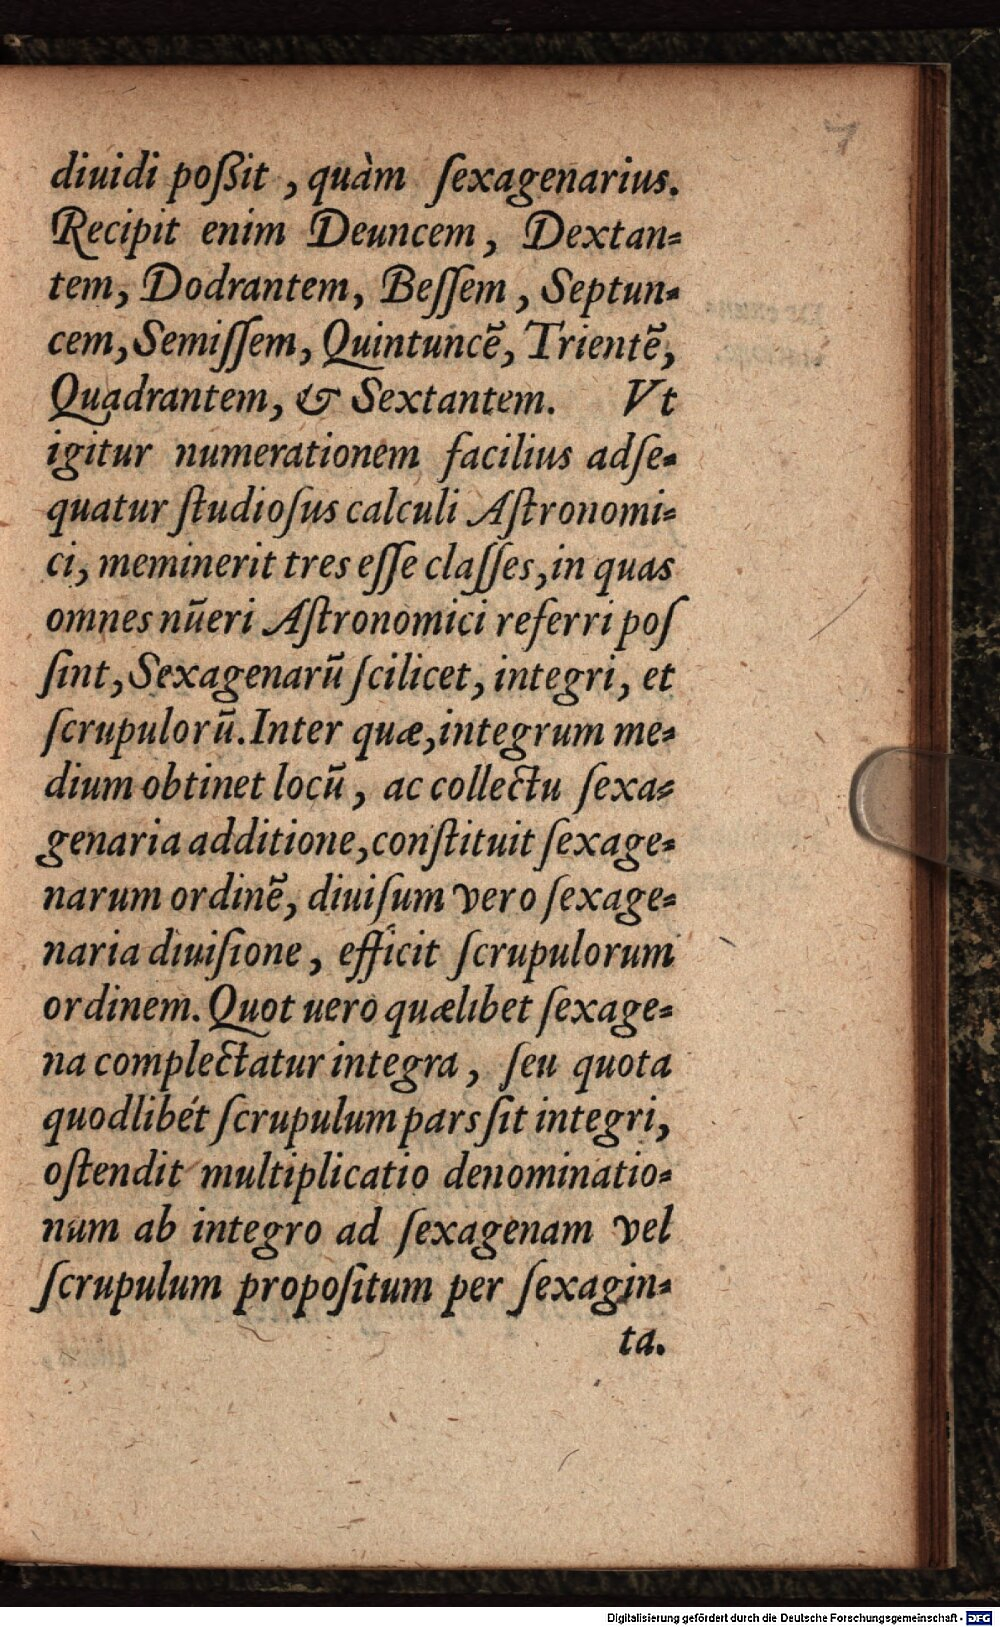 7
diuidi poßit, quàm ſexagenarius.
Recipit enim Deuncem, Dextan-
tem, Dodrantem, Beſſem, Septun-
cem, Semiſſem, Quintuncē, Trientē,
Quadrantem, & Sextantem. Vt
igitur numerationem facilius adſe-
quatur ſtudioſus calculi Aſtronomi-
ci, meminerit tres eſſe claſſes, in quas
omnes nūeri Aſtronomici referri poſ
ſint, Sexagenarū ſcilicet, integri, et
ſcrupulorū. Inter quæ, integrum me-
dium obtinet locū, ac collectu ſexa-
genaria additione, conſtituit ſexage-
narum ordinē, diuiſum vero ſexage-
naria diuiſione, efficit ſcrupulorum
ordinem. Quot uero quælibet ſexage-
na complectatur integra, ſeu quota
quodlibét ſcrupulum pars ſit integri,
oſtendit multiplicatio denominatio-
num ab integro ad ſexagenam vel
ſcrupulum propoſitum per ſexagin-
ta.
Digitalisierung gefördert durch die Deutsche Forschungsgemeinschaft - DFG